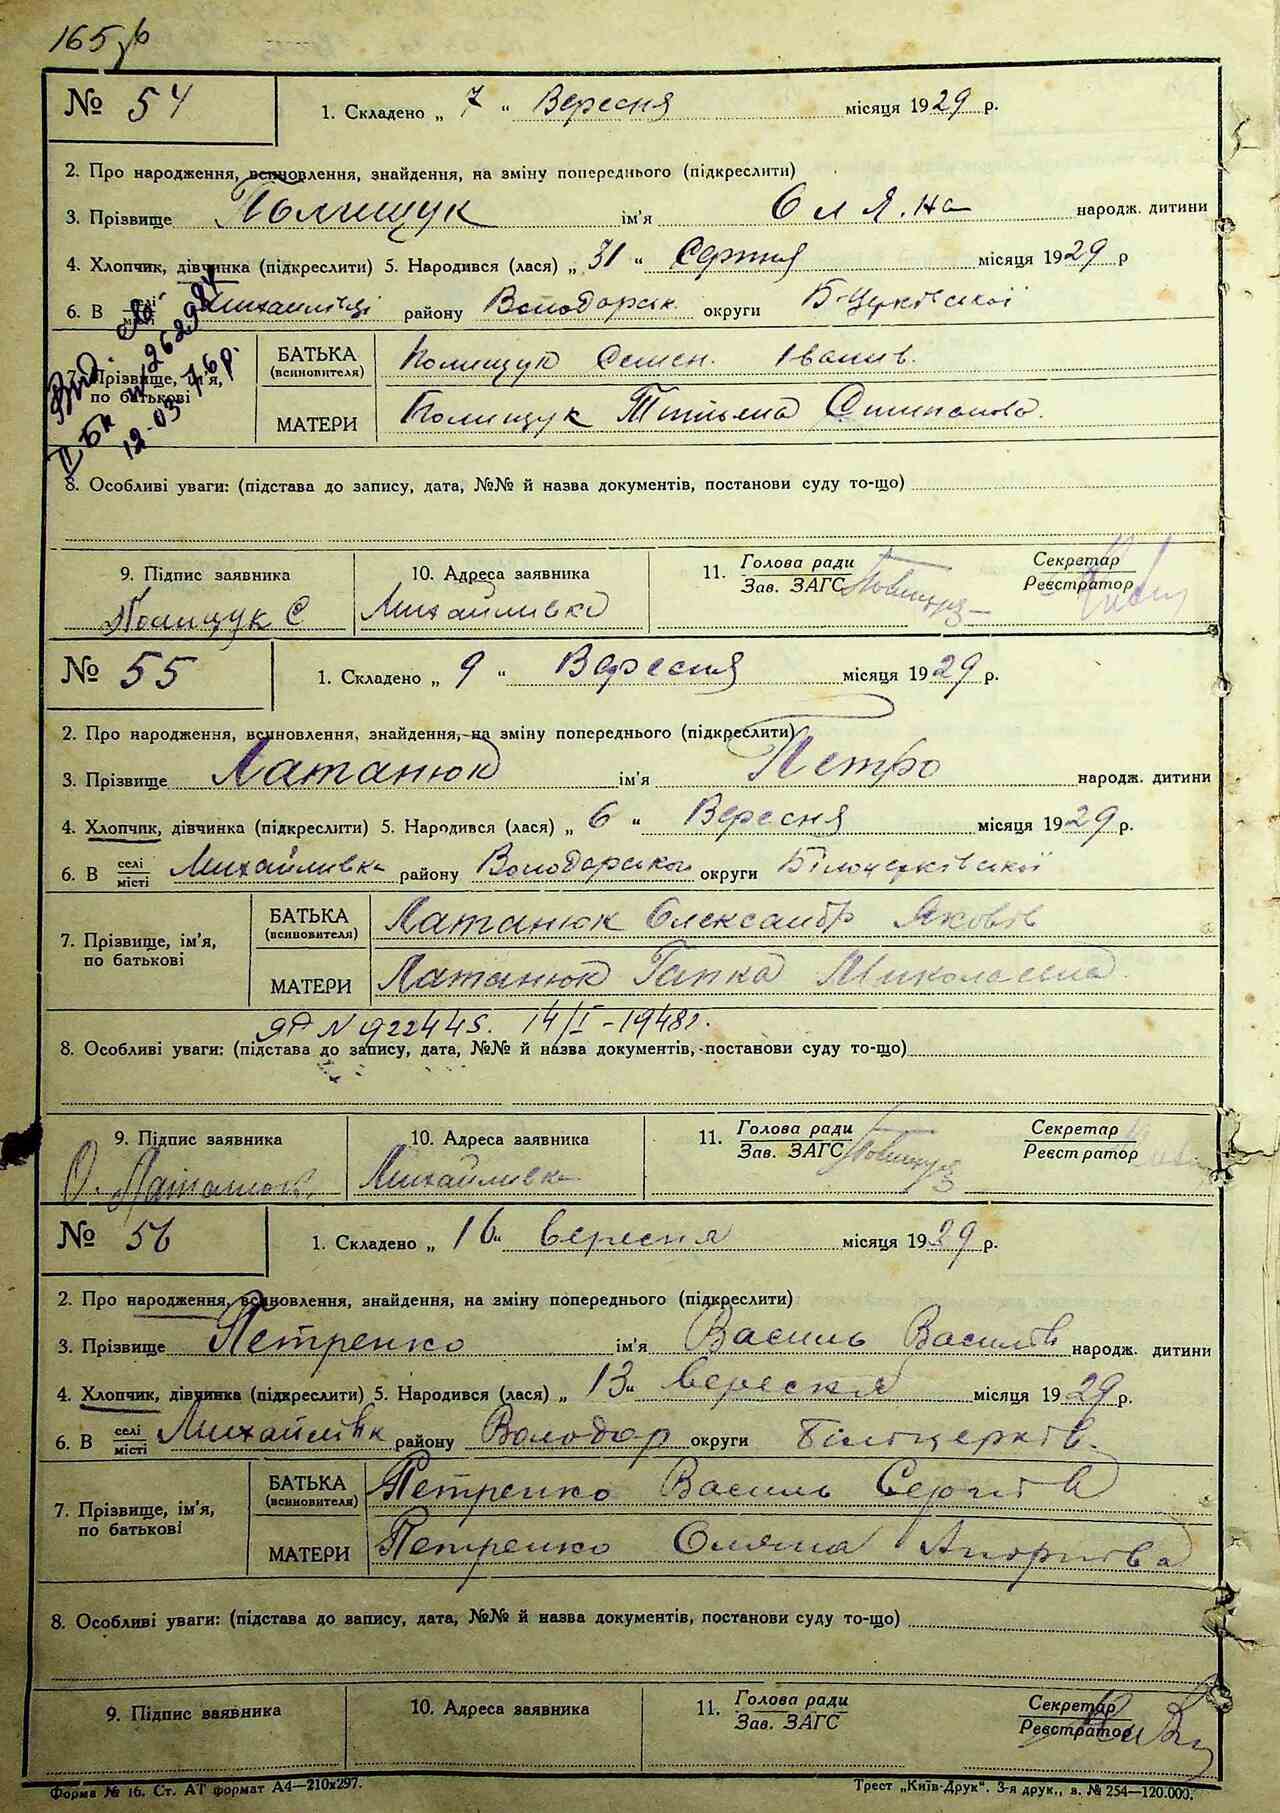 165зв
№ 54
1. Складено „ 7 “ Вересня місяця 1929 р.
2. Про народження, всиновлення, знайдення, на зміну попереднього (підкреслити)
3. Прізвище Полищук ім'я Оляна народж. дитини
4. Хлопчик, дівчинка (підкреслити) 5. Народився (лася) „ 31 “ Серпня місяця 1929 р
6. В селі місті Михайлівці району Володарськ округи Б-Церківської
7. Прізвище, ім'я, по батькові
БАТЬКА (всиновителя) Полищук Семен. Іванив.
МАТЕРИ Полищук Тітьяна Степанова.
12-03 76р.
8. Особливі уваги: (підстава до запису, дата, №№ й назва документів, постанови суду то-що)
9. Підпис заявника 10. Адреса заявника 11. Голова ради Зав. ЗАГС Секретар Реєстратор
Полищук С Михайливка
№ 55
1. Складено „ 9 “ Вересня місяця 1929 р.
2. Про народження, всиновлення, знайдення, на зміну попереднього (підкреслити)
3. Прізвище Латанюк ім'я Петро народж. дитини
4. Хлопчик, дівчинка (підкреслити) 5. Народився (лася) „ 6 “ Вересня місяця 1929 р.
6. В селі місті Михайливка району Володарської округи Білоцерківської
7. Прізвище, ім'я, по батькові
БАТЬКА (всиновителя) Латанюк Олександр Яковів
МАТЕРИ Латанюк Гапка Миколаевна
ЯР N 922445. 14/I-1948г.
8. Особливі уваги: (підстава до запису, дата, №№ й назва документів, постанови суду то-що)
9. Підпис заявника 10. Адреса заявника 11. Голова ради Зав. ЗАГС Секретар Реєстратор
О. Латанюк. Михайливка
№ 56
1. Складено „ 16 “ вересня місяця 1929 р.
2. Про народження, всиновлення, знайдення, на зміну попереднього (підкреслити)
3. Прізвище Петренко ім'я Василь Василів народж. дитини
4. Хлопчик, дівчинка (підкреслити) 5. Народився (лася) „ 13 “ вересня місяця 1929 р.
6. В селі місті Михайлівк району Володар округи Білоцерків.
7. Прізвище, ім'я, по батькові
БАТЬКА (всиновителя) Петренко Василь Сергіів
МАТЕРИ Петренко Оляна Андріівa
8. Особливі уваги: (підстава до запису, дата, №№ й назва документів, постанови суду то-що)
9. Підпис заявника 10. Адреса заявника 11. Голова ради Зав. ЗАГС Секретар Реєстратор
Форма № 16. Ст. АТ формат А4—210х297. Трест „Київ-Друк“. 3-я друк., з. № 254—120.000.